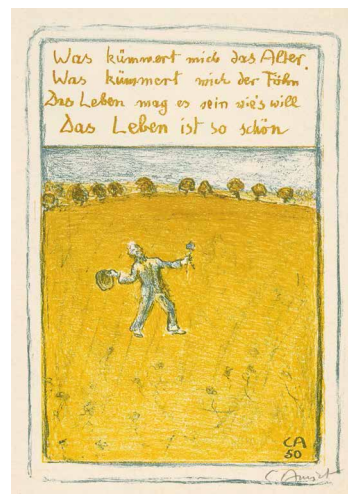 Was kümmert mich das Alter.
Was kümmert mich der Föhn
Das Leben mag es sein wie's will
Das Leben ist so schön
CA
50
C Amiet